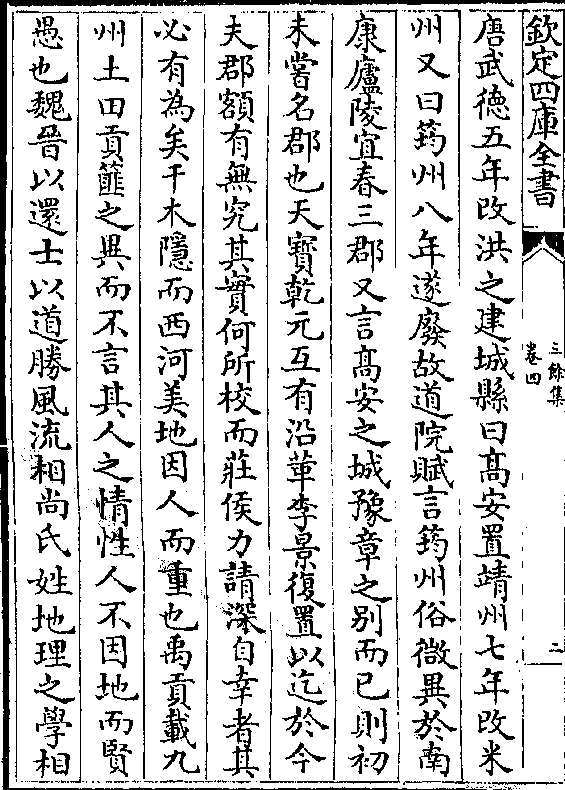 欽定四庫全書
三餘集
卷四
二
唐武德五年改洪之建城縣曰髙安置靖州七年改米
州又曰筠州八年遂廢故道院賦言筠州俗微異於南
康廬陵宜春三郡又言髙安之城豫章之别而已則初
未嘗名郡也天寳乾元互有沿革李景復置以迄於今
夫郡額有無究其實何所校而莊侯力請深自幸者其
必有為矣干木隱而西河美地因人而重也禹貢載九
州土田貢篚之異而不言其人之情性人不因地而賢
愚也魏晉以還士以道勝風流相尚氏姓地理之學相